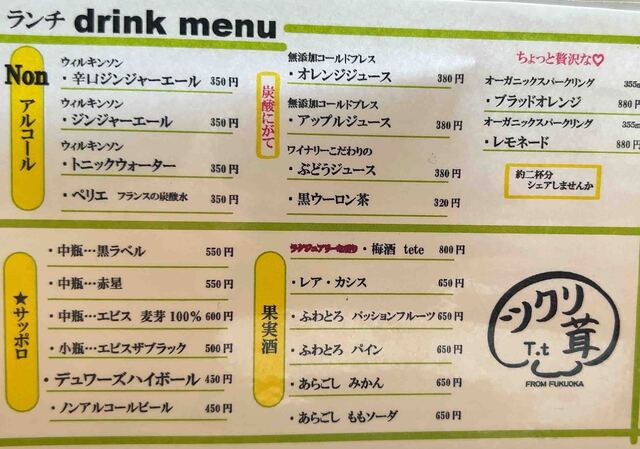 ランチ drink menu
Non アルコール
ウィルキンソン
・辛口ジンジャーエール 350円
ウィルキンソン
・ジンジャーエール 350円
ウィルキンソン
・トニックウォーター 350円
・ペリエ フランスの炭酸水 350円
炭酸にがて
無添加コールドプレス
・オレンジジュース 380円
無添加コールドプレス
・アップルジュース 380円
ワイナリーこだわりの
・ぶどうジュース 380円
・黒ウーロン茶 320円
ちょっと贅沢な♡
オーガニックスパークリング 355m
・ブラッドオレンジ 880円
オーガニックスパークリング 355m
・レモネード 880円
約二杯分
シェアしませんか
★サッポロ
・中瓶…黒ラベル 550円
・中瓶…赤星 550円
・中瓶…エビス 麦芽100% 600円
・小瓶…エビスザブラック 500円
・デュワーズハイボール 450円
・ノンアルコールビール 450円
果実酒
・梅酒 tete 800円
・レア・カシス 650円
・ふわとろ パッションフルーツ 650円
・ふわとろ パイン 650円
・あらごし みかん 650円
・あらごし ももソーダ 650円
ツクリ茸
T.t
FROM FUKUOKA